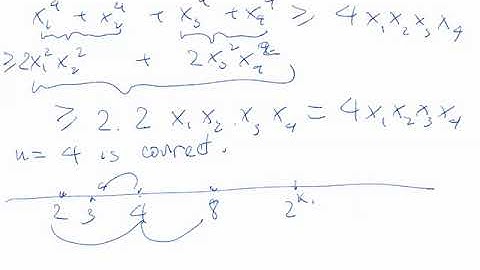 x₁⁴ + x₂⁴ + x₃⁴ + x₄⁴ ≥ 4x₁x₂x₃x₄
≥ 2x₁²x₂² + 2x₃²x₄²
≥ 2.2 x₁x₂.x₃x₄ = 4x₁x₂x₃x₄
n = 4 is correct.
2 3 4 8 2ᵏ.